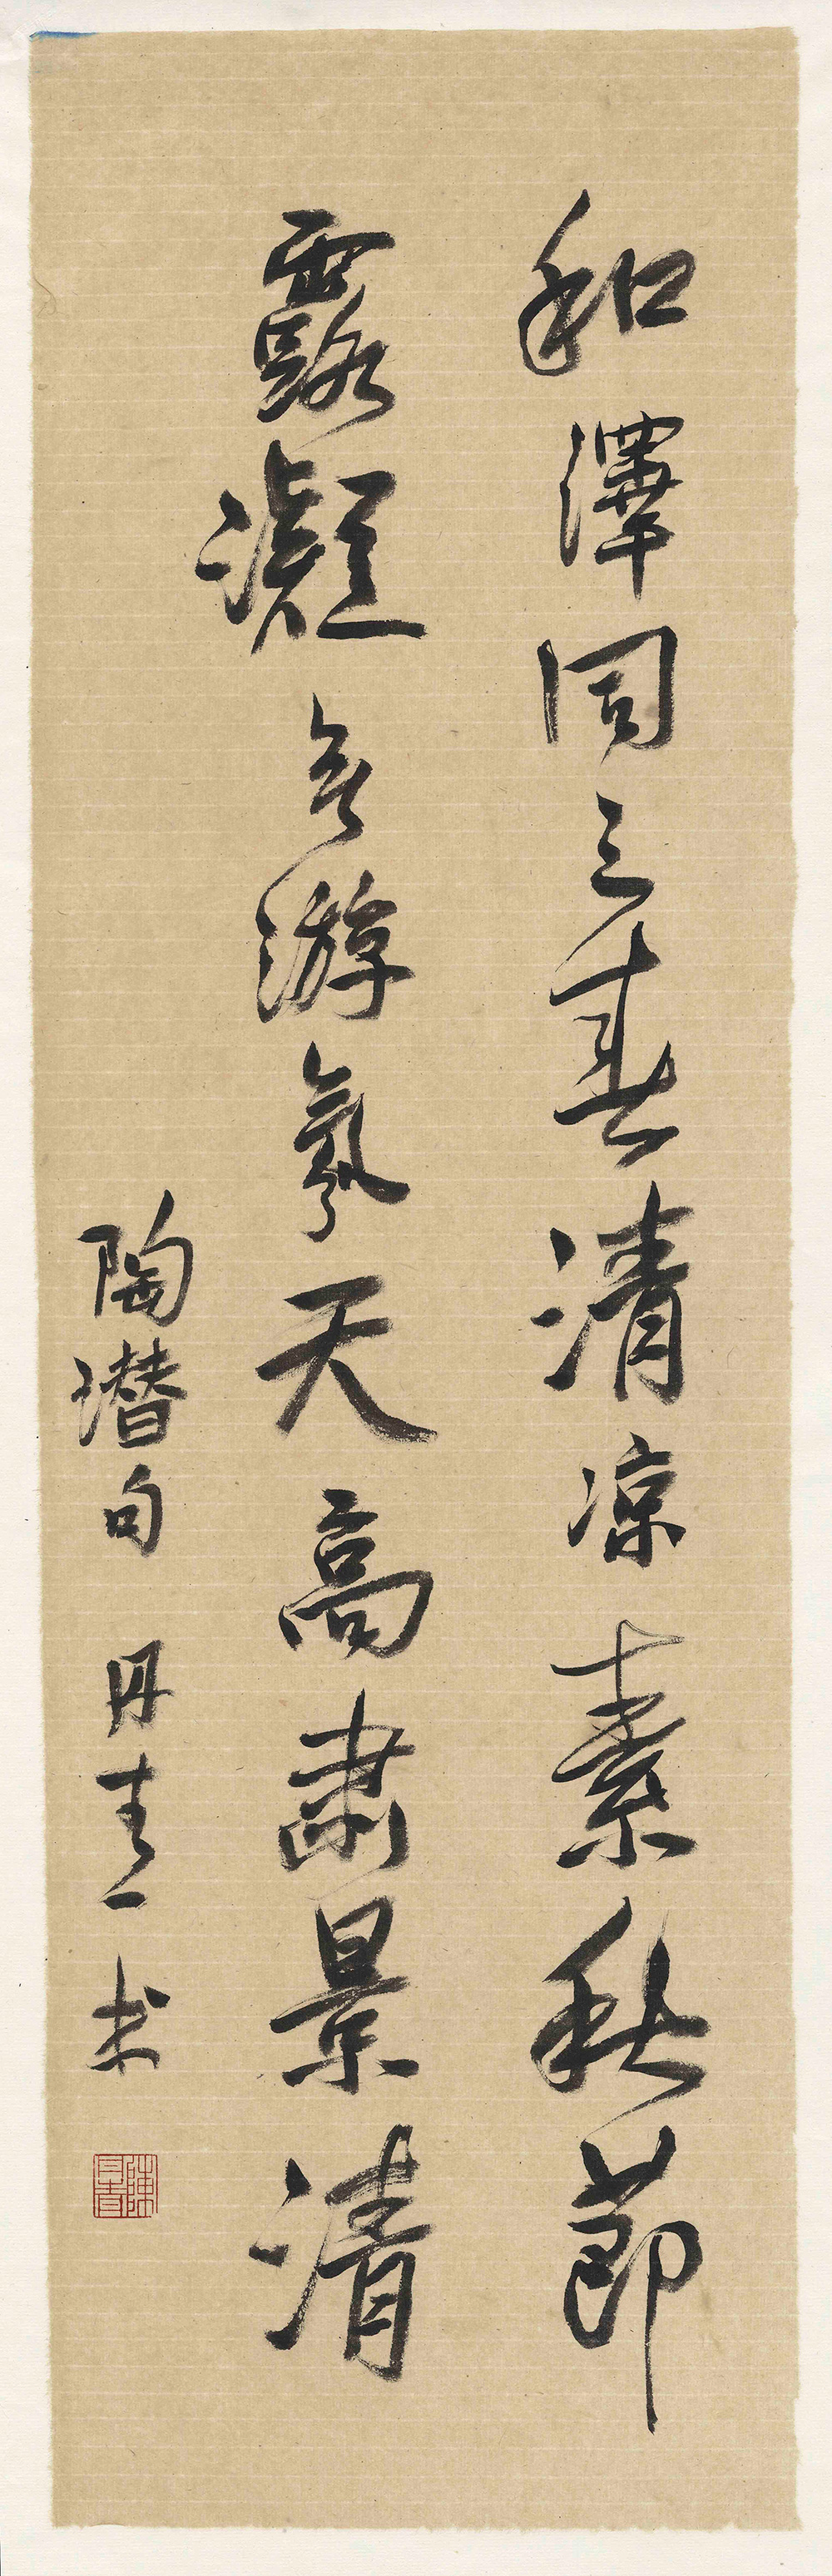 和澤周三春清凉素秋節
露凝無游氛天高肅景清
陶潜句 丹青书
陳丹青